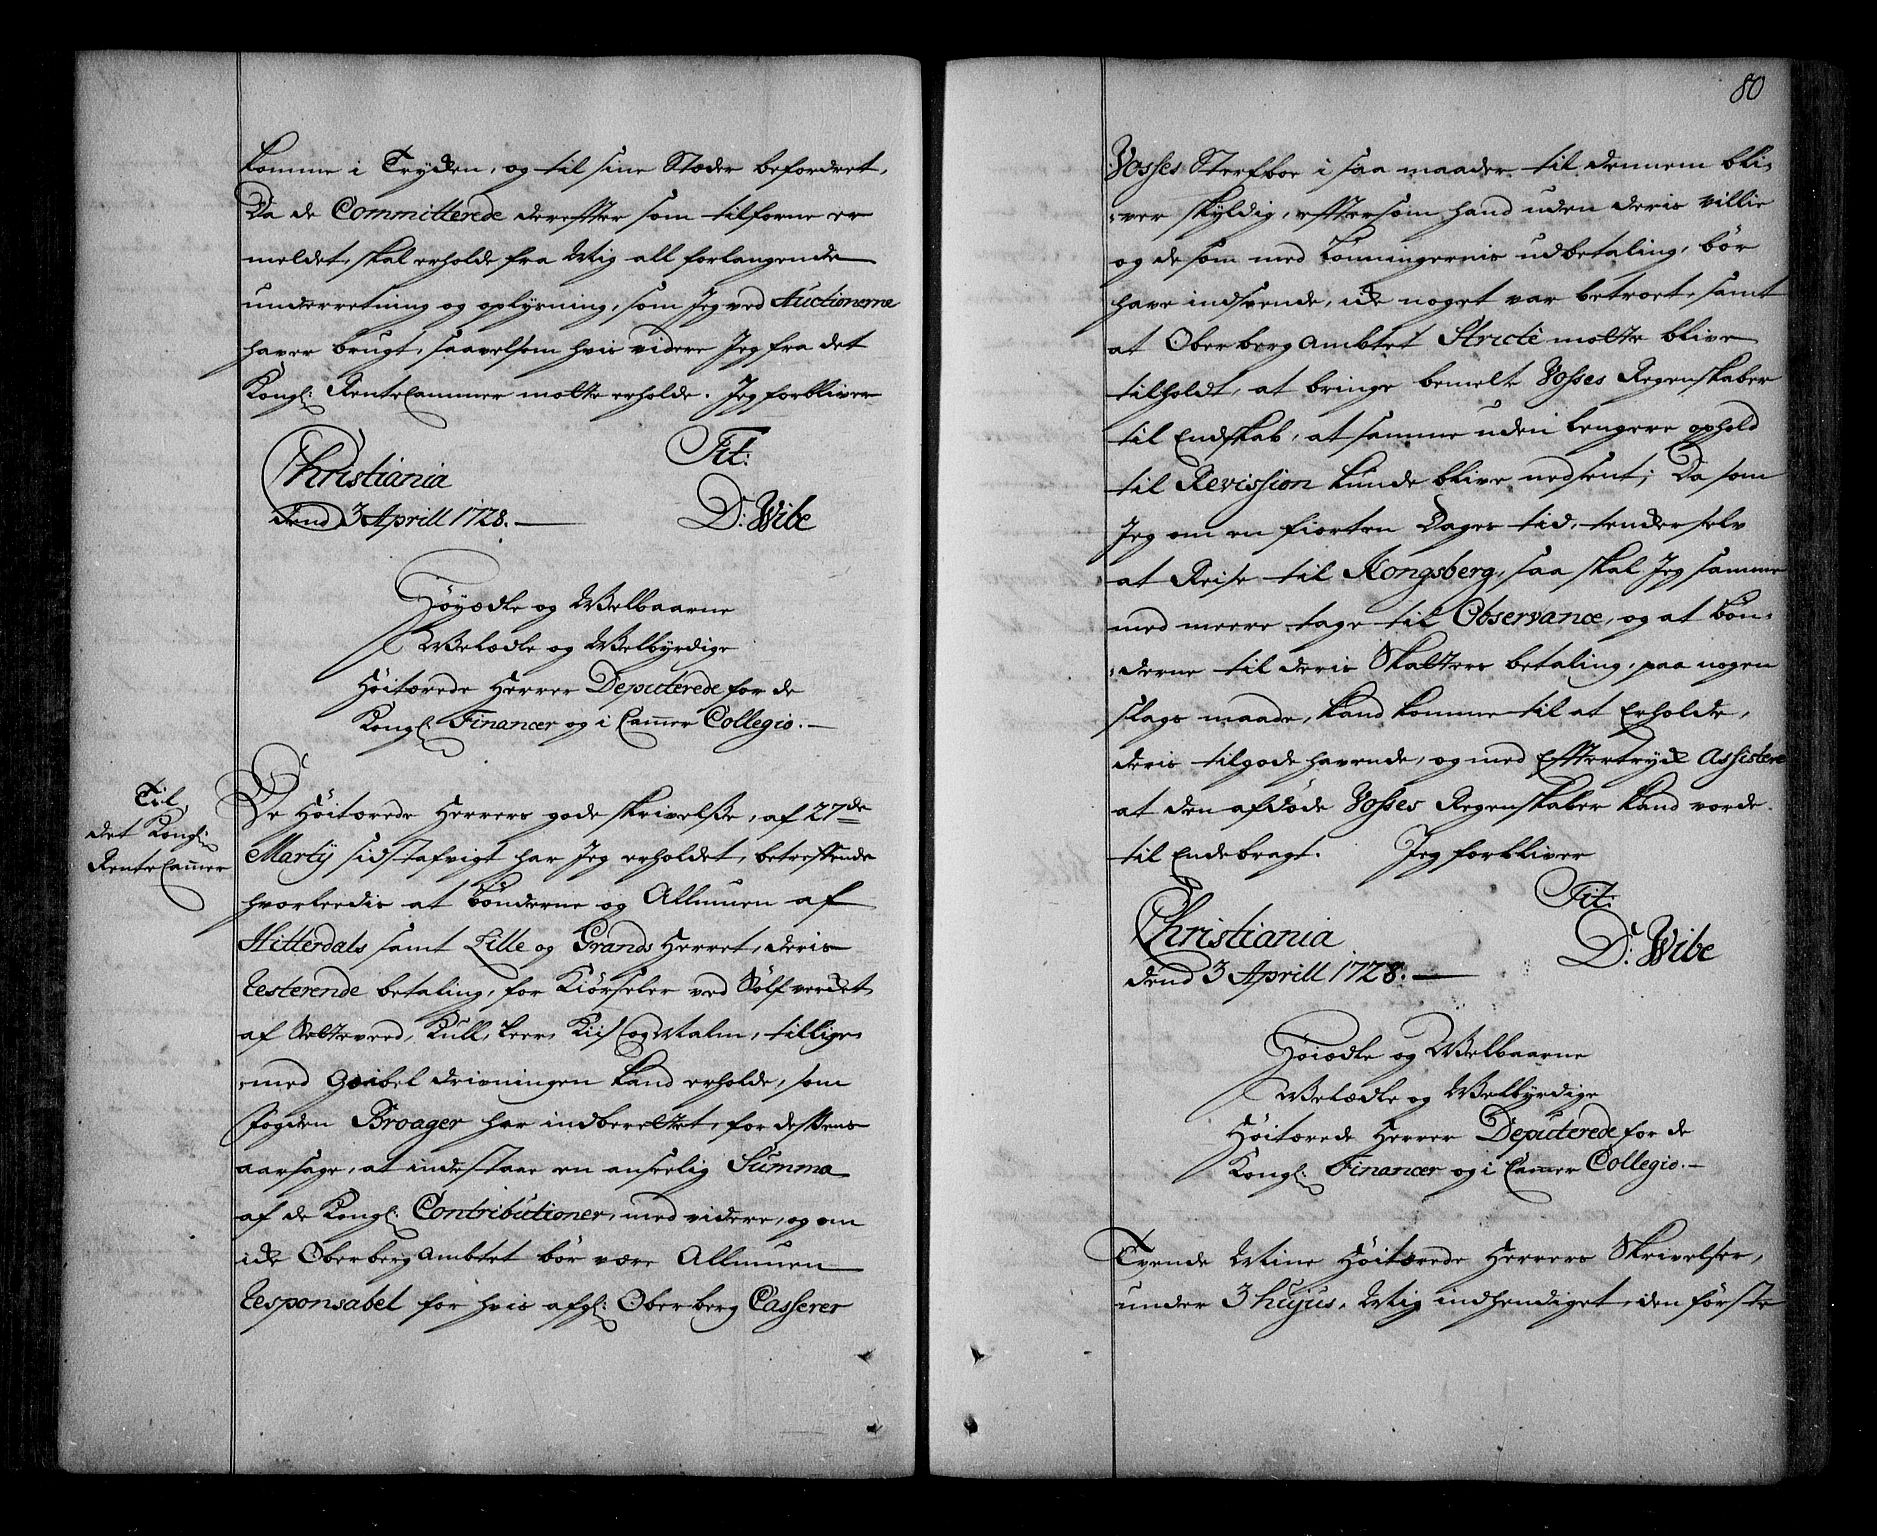 komme i Tryken, og til sine Stæder befordret,
Da de Committerede derefter som tilforne er
meldet, skal erholde fra Mig all forlangende
underretning og oplysning, som Jeg ved Auctionerne
haver brugt, saavelsom hvis videre Jeg fra det
Kongl: RenteCammer motte erholde. Jeg forbliver
Christiania
dend 3 Aprill 1728.
Tit:
D: Wibe
Høyædle og Welbaarne
Welædle og Welbyrdige
Høitærede Herrer Deputerede for de
Kongl: Financer og i Cam̄er Collegio.
Til
det Kongl:
RenteCam̄er
De Høitærede Herrers gode skrivelsse, af 27de
Martij sidstafvigt har Jeg erholdet, betreffende
hvorleedis at Bønderne og Allmuen af
Hitterdals samt Lille og Grands Herret, deris
resterende betaling, for Kiørseler ved Sølfverket,
af Setteveed, Kull, Leer, Kiis og Malm, tillige
med Gæibel drivningen kand erholde, som
fogden Broager har indberettet, for dessens
aarsage, at indestaae en anseelig Summa
af de Kongl: Contributioner, med videre, og om
icke Oberbergambtet bør være Allmuen
Responsabel for hvis afgl: Oberberg Casserer
80
Vosses Sterfboe i saa maader til dennem bli-
ver skyldig, eftersom hand uden deris villie
og de som med Lønningernis udbetaling, bør
have indseende, icke noget var betroet, samt
at Oberbergambtet Stricte motte blive
tilholdt, at bringe bemelte Vosses Regenskaber
til Endskab, at samme uden lengere ophold
til Revission kunde blive nedsent; Da som
Jeg om en fiorten Dages tid, tender selv
at Reise til Kongsberg, saa skal Jeg samme
med meere tage til Observance, og at Bøn-
derne til deris Skatters betaling, paa nogen
slags maade, kand komme til at Erholde,
deris tilgodehavende, og med Eftertryck Assistere
at den afdøde Vosses Regenskaber kand vorde
til Ende bragt. Jeg forbliver
Christiania
dend 3 Aprill 1728.
Tit:
D: Wibe
Høiædle og Welbaarne
Welædle og Welbyrdige
Høitærede Herrer Deputerede for de
Kongl: Financer og i Cam̄er Collegio.
Tvende Mine Høitærede Herrers Skrivelser,
under 3 hujus, Mig indhendiget, den første